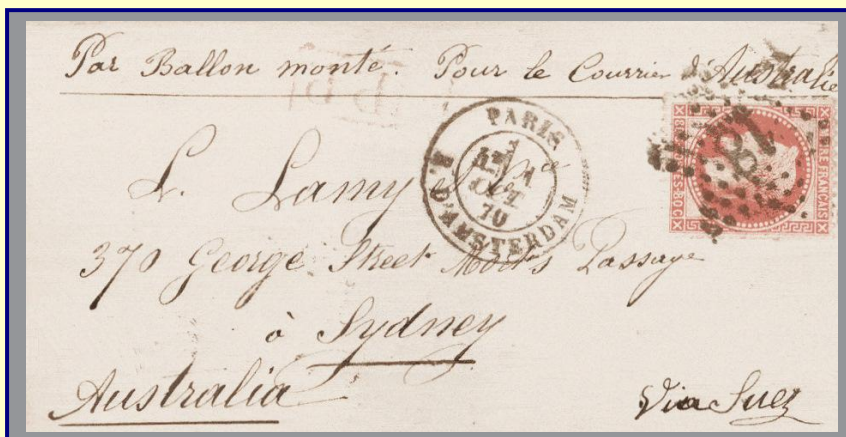 Par Ballon monté. Pour le Courrier d'Australie
PD
PARIS
OCT
70
R. D'AMSTERDAM
18
EMPIRE FRANÇAIS
POSTES 80C
L. Lamy
370 George Street Mort's Passage
à Sydney
Australia
Via Suez